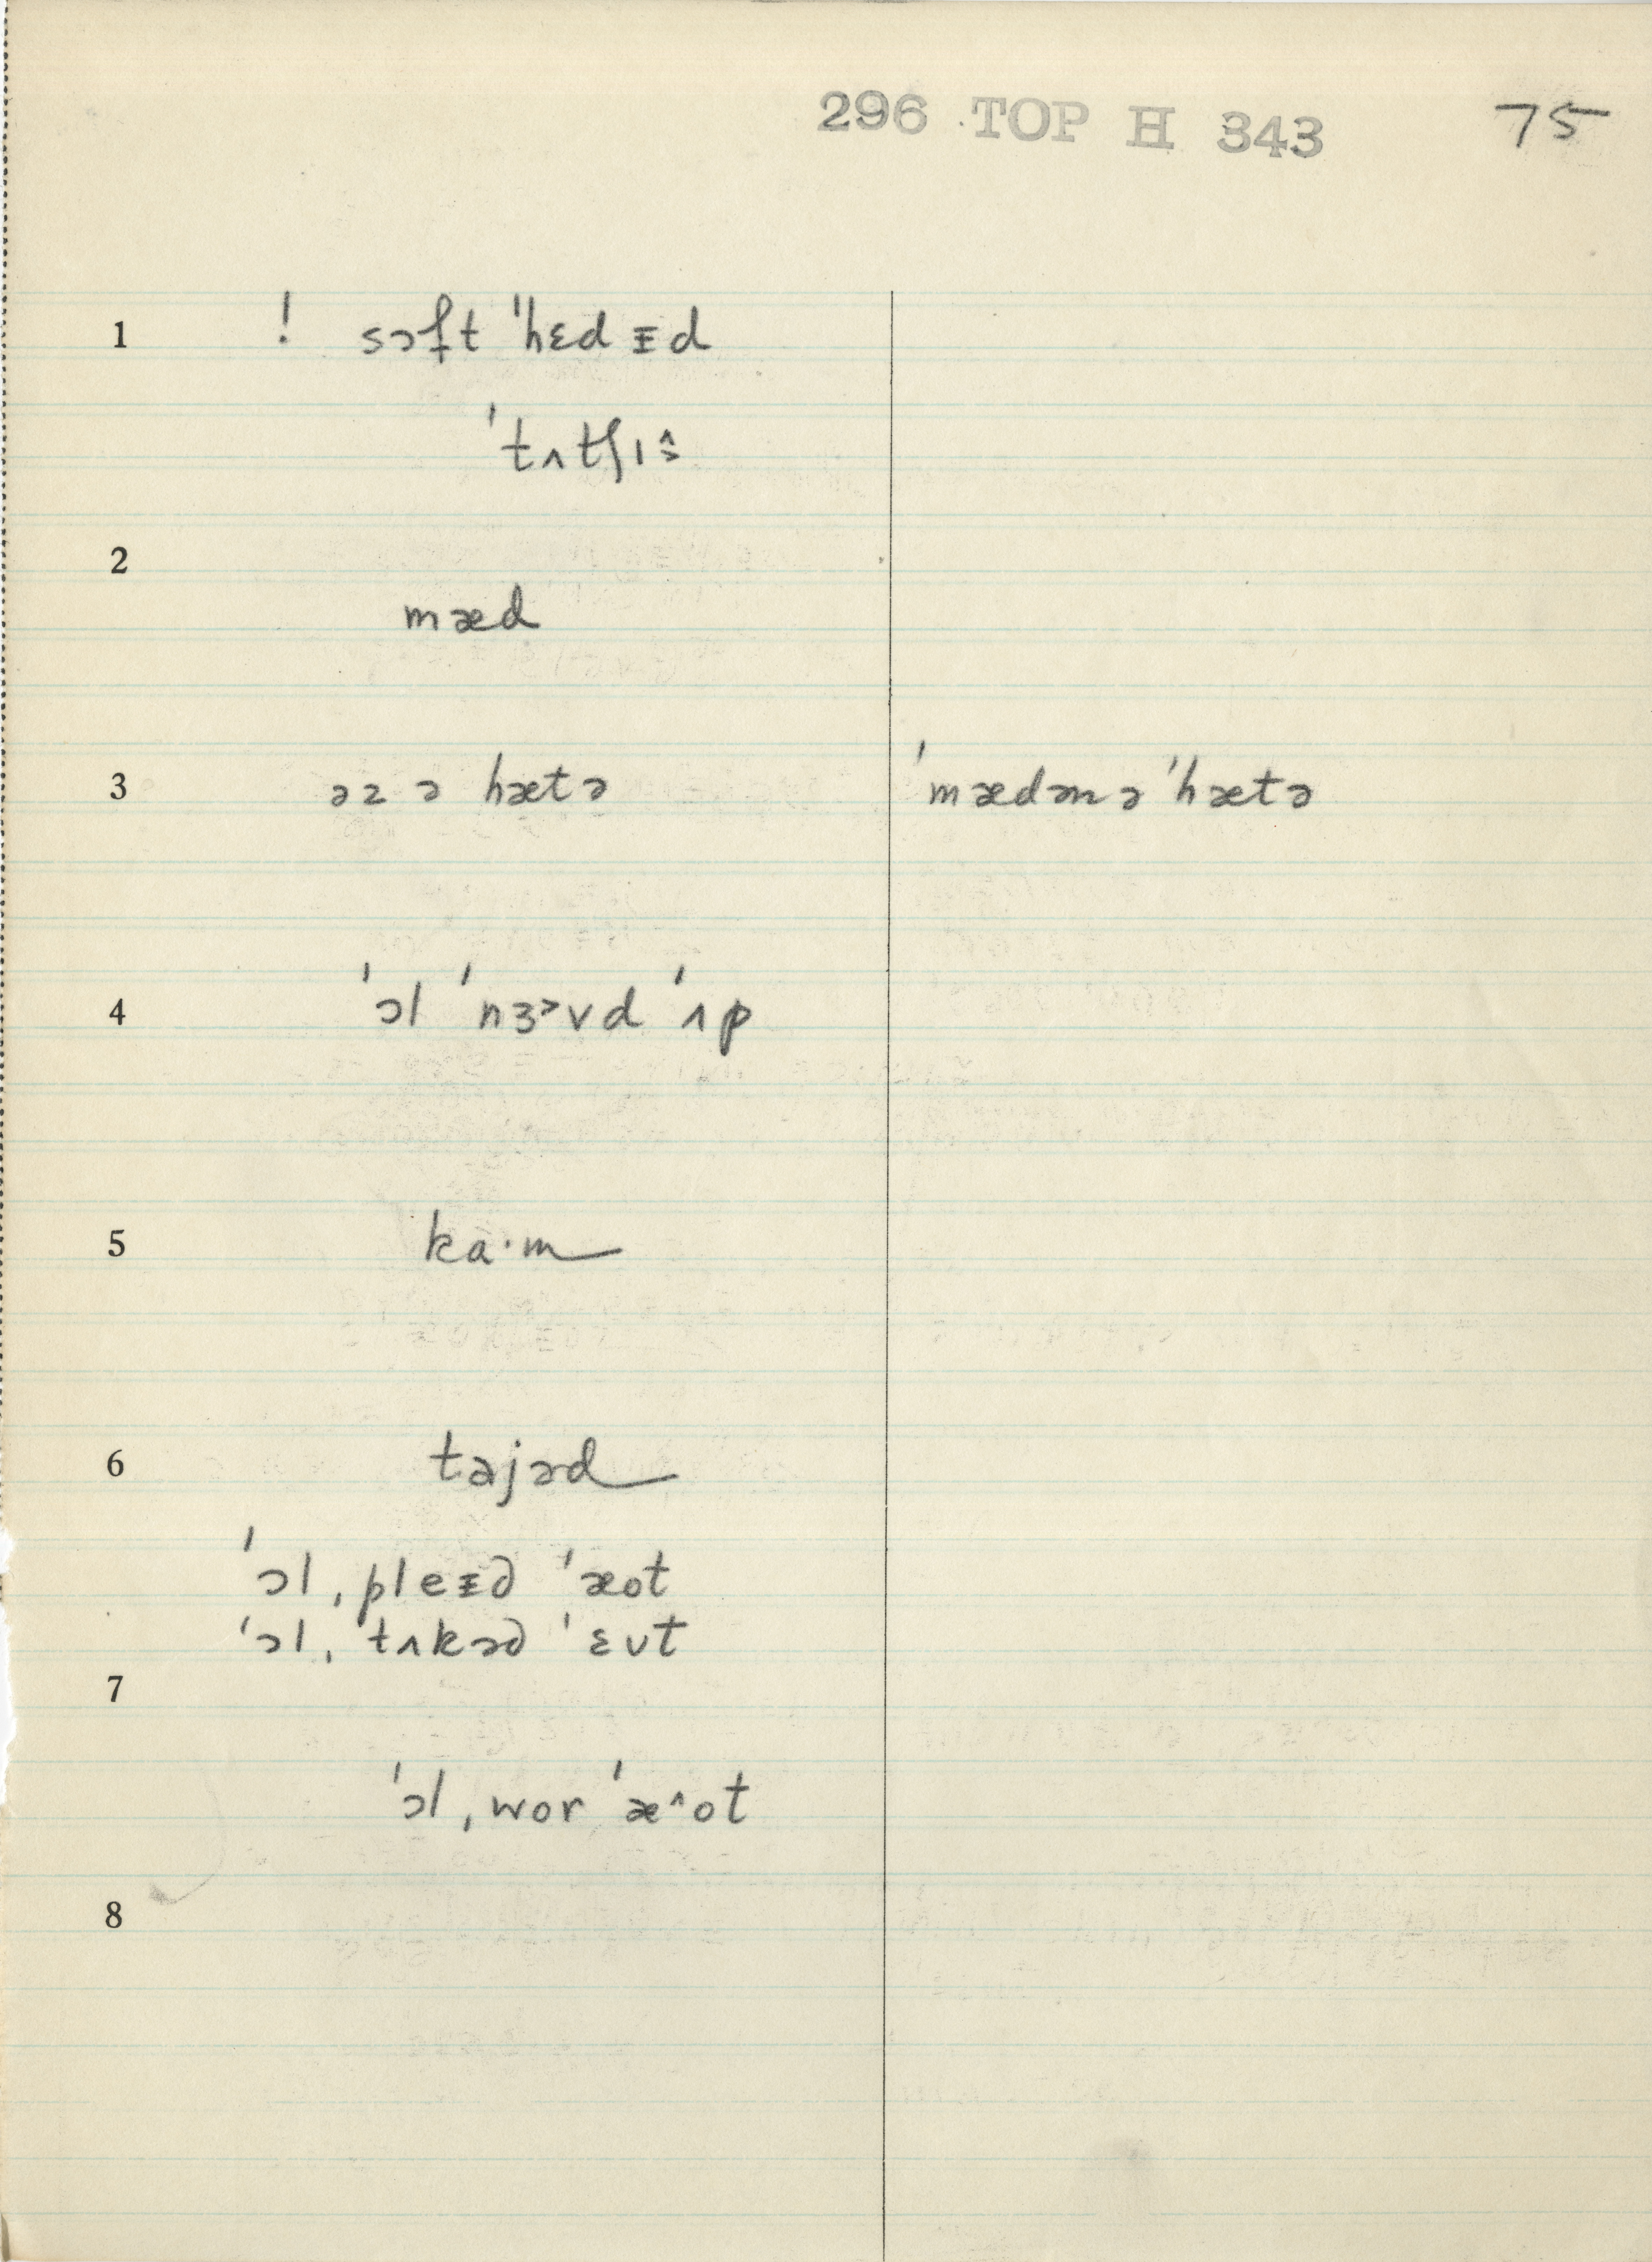 296 TOP H 343 75
1 ! sɔft ˈhɛd ᵻd
ˈtʌtʃɪ
2
mæd
3 əz ə hætə ˈmædənə ˈhætə
4 ˈɔl ˈnɜ˃vd ˈʌp
5 ka·m
6 tajəd
ˈɔl ˌpleᵻd ˈæot
ˈɔl ˌtʌkəd ˈɛʊt
7
ˈɔl ˌwor ˈæ^ot
8